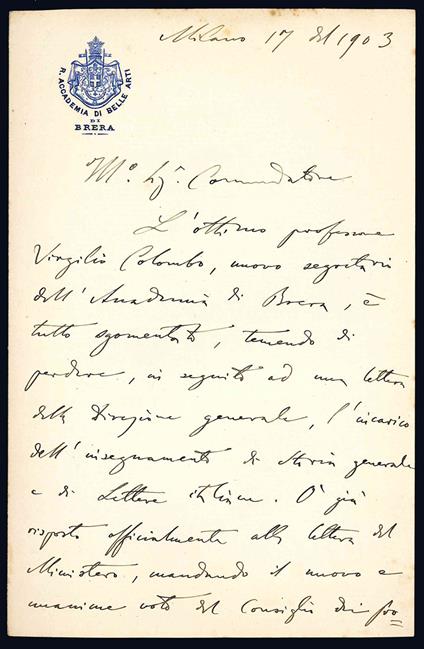 Milano 17 del 1903
R. ACCADEMIA DI BELLE ARTI
DI
BRERA
Commendatore
L'ottimo professore
Virgilio Colombo, nuovo segretario
dell'Accademia di Brera, è
tutto sgomentato, temendo di
perdere, in seguito ad una lettera
della Direzione generale, l'incarico
dell'insegnamento di Storia generale
e di Lettere italiane. Ò già
risposto officialmente alla lettera del
Ministero, mandando il nuovo e
unanime voto del Consiglio dei pro=